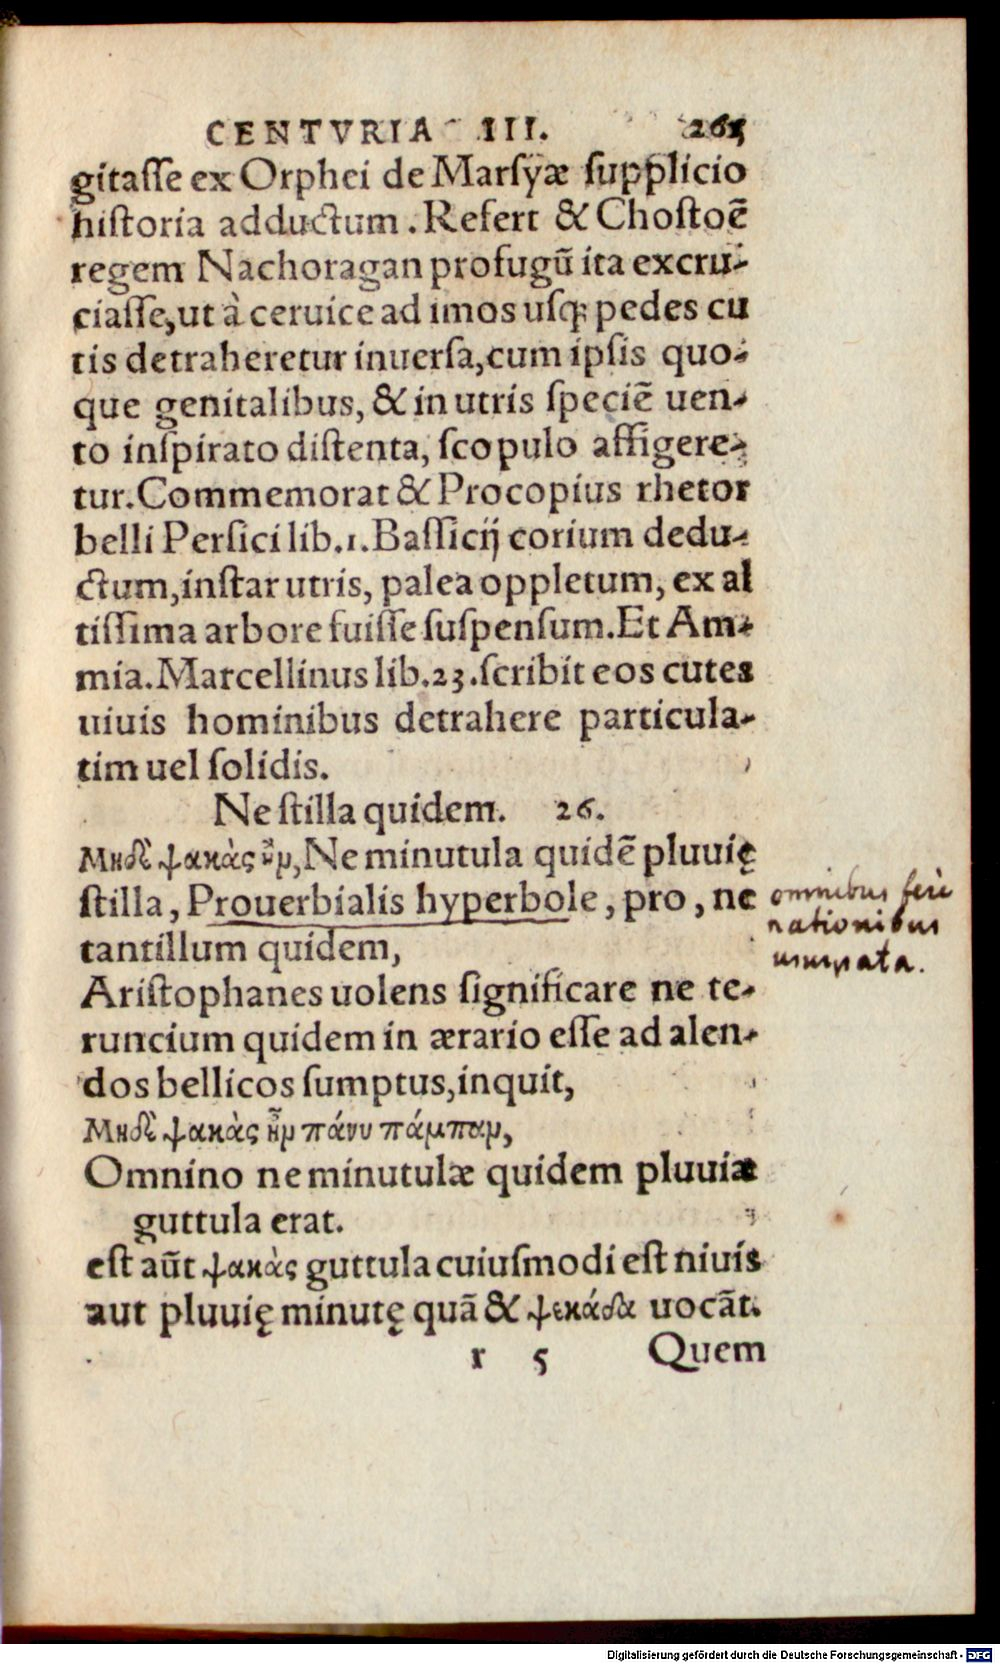 CENTVRIA III. 265
gitaſſe ex Orphei de Marſyæ ſupplicio
hiſtoria adductum. Refert & Choſtoē
regem Nachoragan profugū ita excru-
ciaſſe, ut à ceruice ad imos uſq; pedes cu
tis detraheretur inuerſa, cum ipſis quo-
que genitalibus, & in utris ſpeciē uen-
to inſpirato diſtenta, ſcopulo affigere-
tur. Commemorat & Procopius rhetor
belli Perſici lib. 1. Baſſicij corium dedu-
ctum, inſtar utris, palea oppletum, ex al
tiſſima arbore fuiſſe ſuſpenſum. Et Am-
mia. Marcellinus lib. 23. ſcribit eos cutes
uiuis hominibus detrahere particula-
tim uel ſolidis.
Ne ſtilla quidem. 26.
Μηδὲ ψακὰς ἦν, Ne minutula quidē pluuię
ſtilla, Prouerbialis hyperbole, pro, ne
omnibus fere
nationibus
usurpata.
tantillum quidem,
Ariſtophanes uolens ſignificare ne te-
runcium quidem in ærario eſſe ad alen-
dos bellicos ſumptus, inquit,
Μηδὲ ψακὰς ἦν πάνυ πάμπαν,
Omnino ne minutulæ quidem pluuiæ
guttula erat.
eſt aūt ψακὰς guttula cuiuſmodi eſt niuis
aut pluuię minutę quā & ψεκάδα uocāt.
r 5 Quem
Digitalisierung gefördert durch die Deutsche Forschungsgemeinschaft - DFG